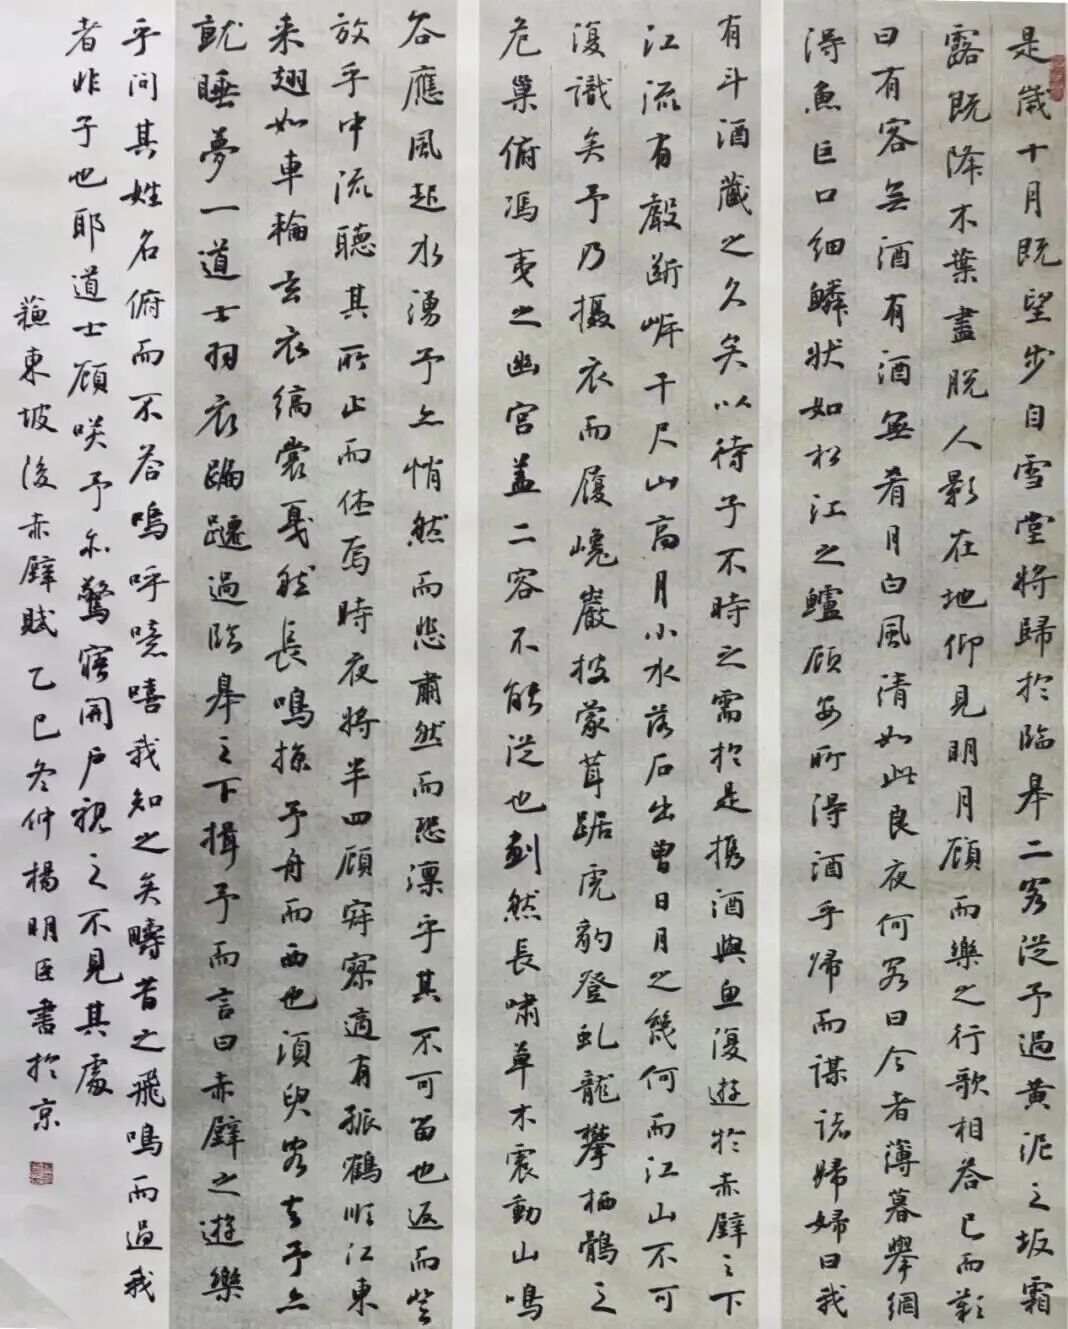 是歲十月既望步自雪堂將歸於臨皋二客從予過黃泥之坂霜
露既降木葉盡脫人影在地仰見明月顧而樂之行歌相答已而歎
曰有客無酒有酒無肴月白風清如此良夜何客曰今者薄暮舉網
得魚巨口細鱗狀如松江之鱸顧安所得酒乎歸而謀諸婦婦曰我
有斗酒藏之久矣以待子不時之需於是攜酒與魚復遊於赤壁之下
江流有聲斷岸千尺山高月小水落石出曾日月之幾何而江山不可
復識矣予乃攝衣而履巉巖披蒙茸踞虎豹登虬龍攀栖鶻之
危巢俯馮夷之幽宮蓋二客不能從也劃然長嘯草木震動山鳴
谷應風起水湧予亦悄然而悲肅然而恐凜乎其不可留也返而登
放乎中流聽其所止而休焉時夜將半四顧寂寥適有孤鶴順江東
來翅如車輪玄衣縞裳戛然長鳴掠予舟而西也須臾客去予亦
就睡夢一道士羽衣蹁躚過臨皋之下揖予而言曰赤壁之遊樂
乎問其姓名俯而不答嗚呼噫嘻我知之矣疇昔之飛鳴而過我
者非子也耶道士顧笑予亦驚寤開戶視之不見其處
蘇東坡後赤壁賦乙巳冬仲楊明臣書於京